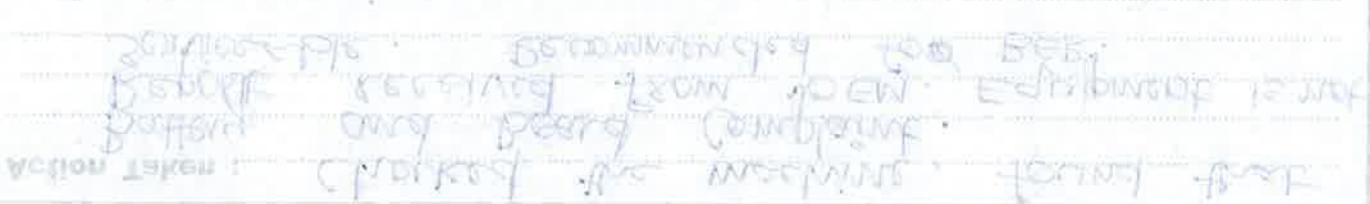 Action Taken : Checked the machine. found that
Battery and Board Complaint.
Report received from OEM. Equipment is not
Serviceable. Recommended for BER.